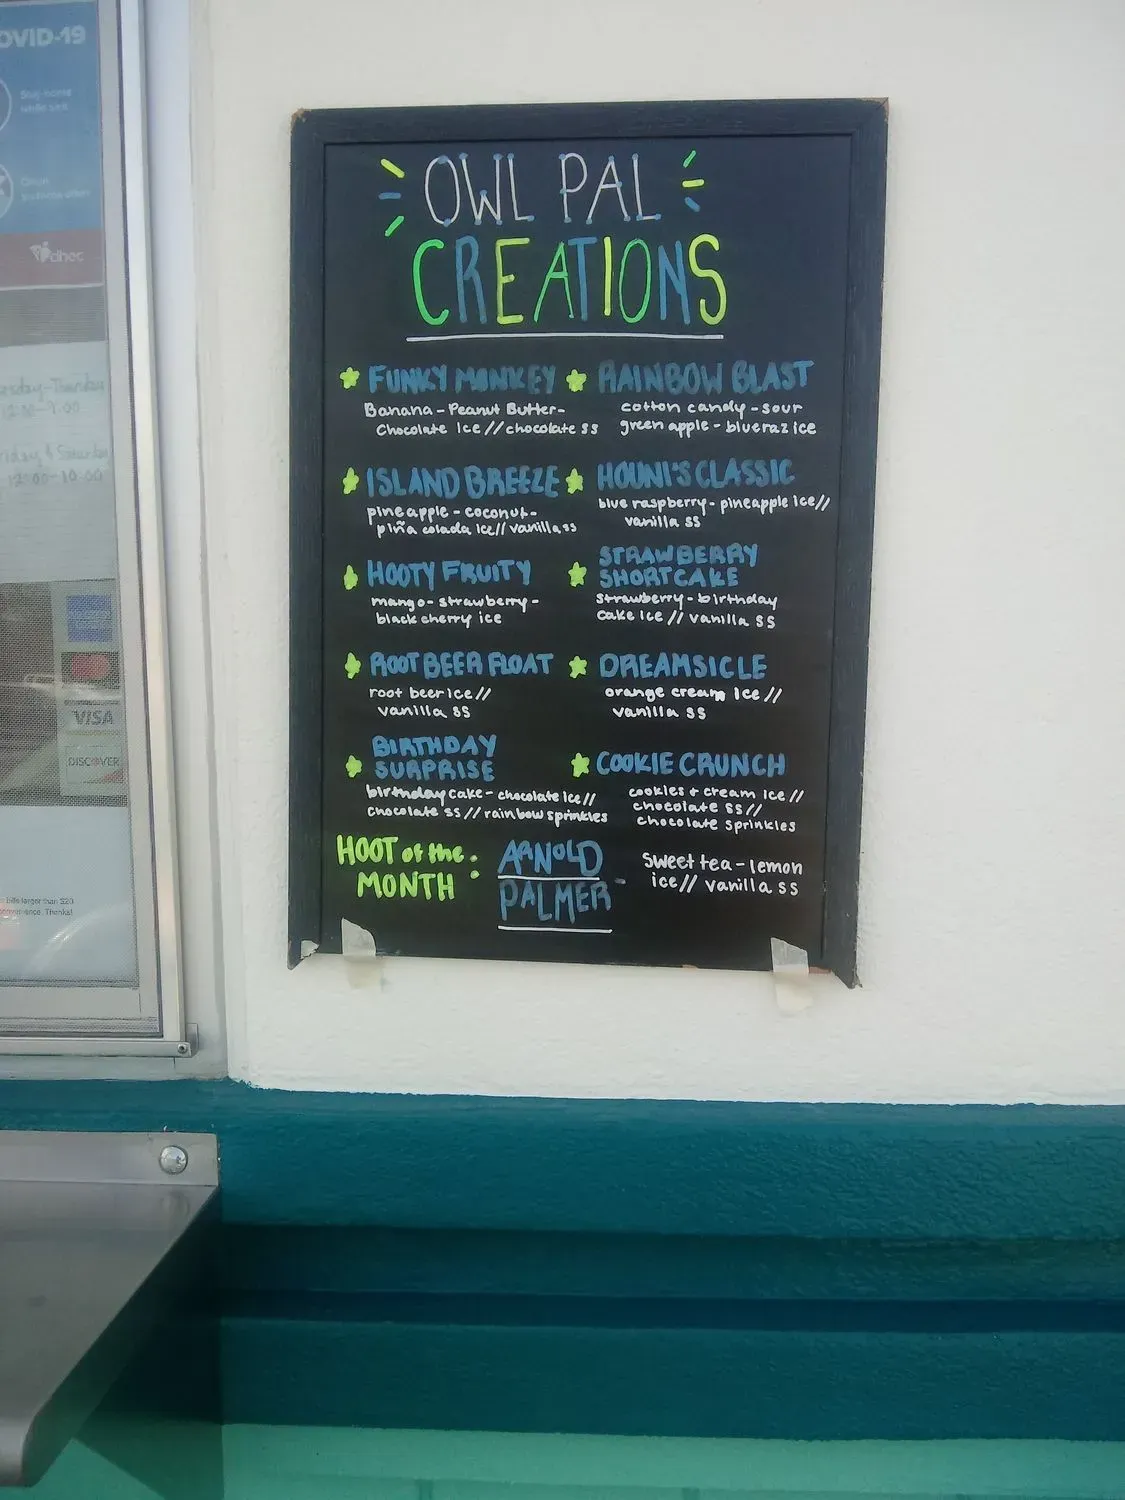 OVID-19
Stay home
while sick
dhec
12:00-9:00
12:00-10:00
VISA
DISCOVER
bills larger than $20
Thanks!
OWL PAL
CREATIONS
FUNKY MONKEY
Banana - Peanut Butter-
Chocolate Ice // chocolate SS
ISLAND BREEZE
pineapple - coconut-
piña colada ice // vanilla ss
HOOTY FRUITY
mango - strawberry -
black cherry ice
ROOT BEER FLOAT
root beer ice //
vanilla SS
BIRTHDAY
SURPRISE
birthday cake - chocolate ice //
chocolate SS // rainbow sprinkles
RAINBOW BLAST
cotton candy - sour
green apple - blue raz ice
HOUNI'S CLASSIC
blue raspberry - pineapple ice //
vanilla SS
STRAWBERRY
SHORTCAKE
strawberry - birthday
cake ice // vanilla SS
DREAMSICLE
orange cream ice //
vanilla SS
COOKIE CRUNCH
cookies + cream ice //
chocolate SS //
chocolate sprinkles
HOOT of the :
MONTH
ARNOLD
PALMER -
Sweet tea - lemon
ice // vanilla SS